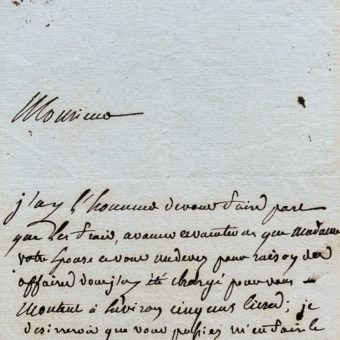 Monsieur
j'ay l'honneur de vous faire part
que les frais, avances et vacations que Madame
votre Epouse et vous me devez pour raison des
affaires dont j'ay été chargé pour vous
montent à environ cinq cens livres; je
desirerois que vous puissiez m'en faire le